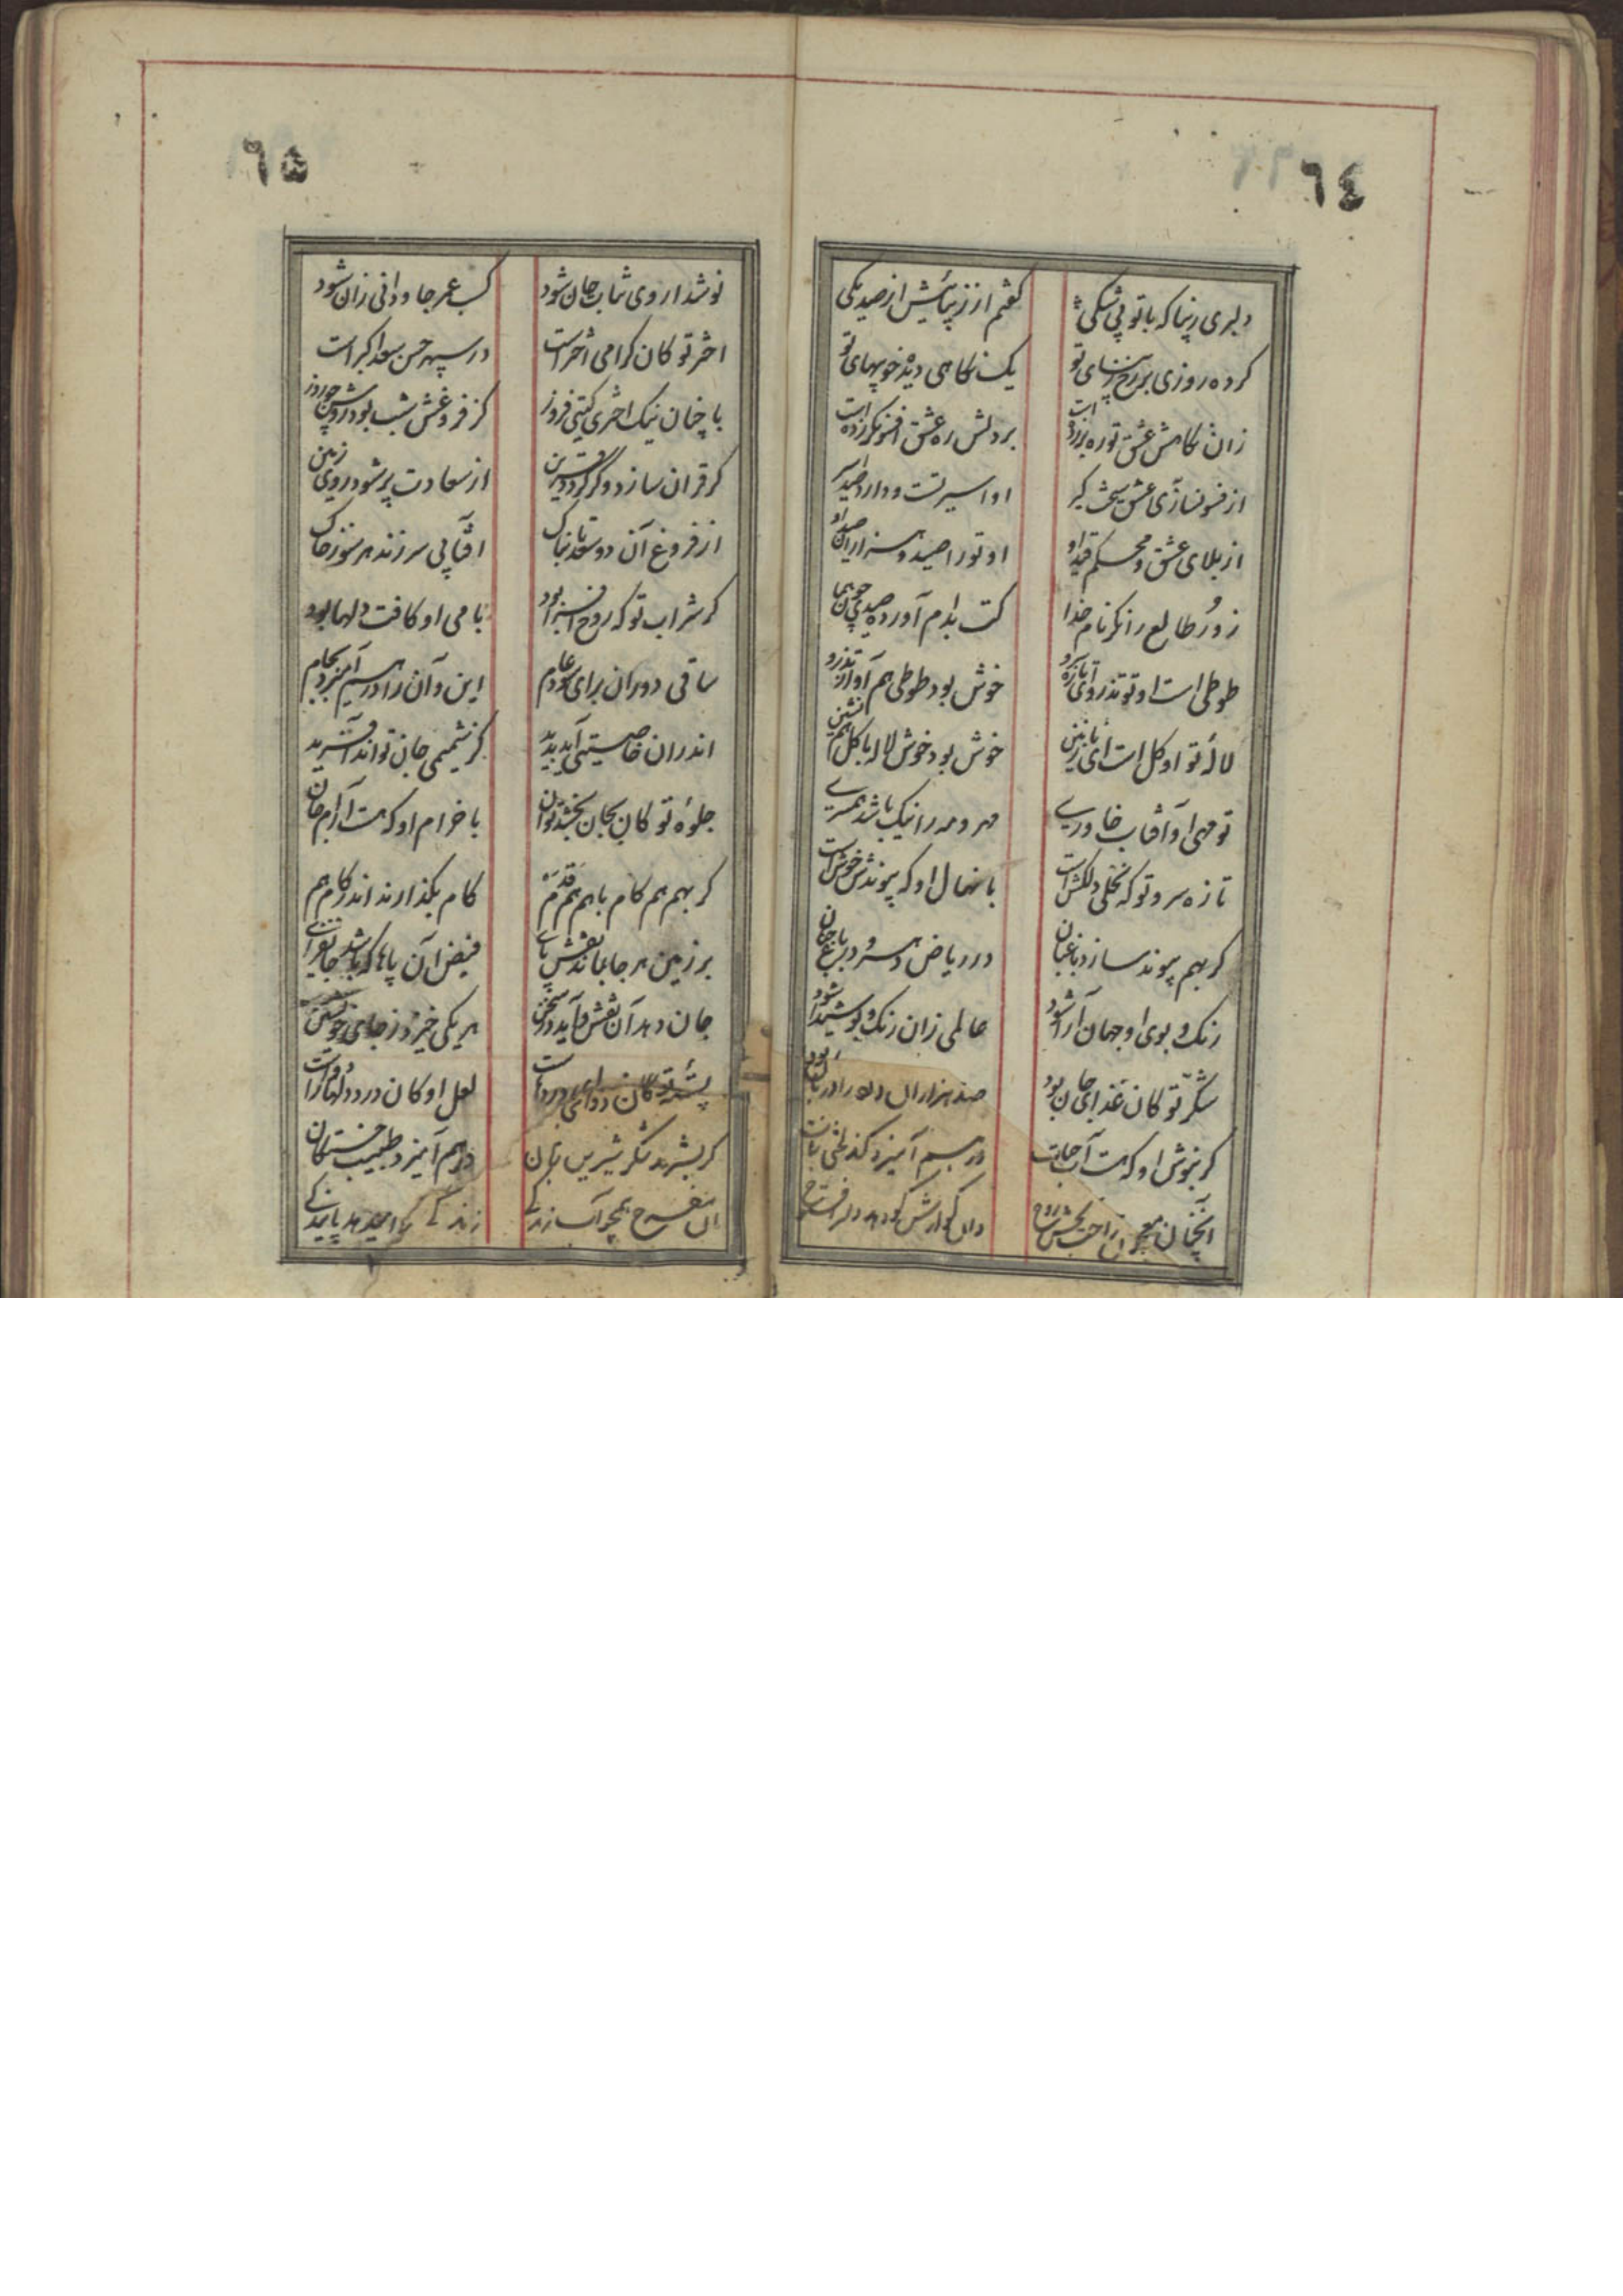 ٦٤
دلبری زیبا که با تو بی شکی
گفتم از زیبائیش از صد یکی
کرده روزی بر رخ زیبای تو
یک نگاهی دیده خوبیهای تو
زان نگاهش عشق تو ره بر زده است
بر دلش ره عشق افسونگر زده است
از فسونسازی عشق سخت گیر
او اسیر تست و دارد صد اسیر
از بلای عشق و محکم قید او
او تو را صید و هزاران صید او
زور طالع را نگر نام خدا
کت بدام آورده صیدی چون هما
طوطی است او تو تذروی تازه رو
خوش بود طوطی هم آواز تذرو
لالهٔ تو او گل است ای نازنین
خوش بود خوش لاله با گل همنشین
تو مهی او آفتاب خاوری
مهر و مه را نیک باشد همسری
تازه سرو تو که نخلی دلکش است
با نهال او که پیوندش خوش است
گر بهم پیوند سازد باغبان
در ریاض دهر و در باغ جهان
رنگ و بوی او جهان آرا شود
عالمی زان رنگ و بو شیدا شود
شکر تو کان غذای جان بود
صد هزاران دل ورا در بان بود
گر بنوش او که هست آب حیات
در هم آمیزد کند لختی بات
آنچنان معجون راحت بخش روح
دل گوارش گو دهد دلرا فتوح
٦٥
نوشداروی شباب جان شود
کسب عمر جاودانی زان شود
اختر تو کان گرامی اختر است
در سپهر حسن سعد اکبر است
با چنان نیک اختری گیتی فروز
کز فروغش شب بود روشن چو روز
گر قران سازد و گر گردد قرین
از سعادت پر شود روی زمین
از فروغ آن دو سعد تابناک
آفتابی سر زند هر سو ز خاک
گر شراب تو که روح افزا بود
با می او کافت دلها بود
ساقی دوران برای دور عام
این و آن را در هم آمیزد بجام
اندران خاصیتی آید پدید
کز نشیمی جان تواند آفرید
جلوهٔ تو کان بجان بخشد توان
با خرام او که هست آرام جان
گر بهم هم گام با هم هم قدم
گام بگذارند اندر گام هم
بر زمین هر جا بماند نقش پای
فیض آن پاها که باشد جانفزای
جان دهد آن نقش و آید در سخن
هر یکی خیزد ز جای خویشتن
پستهٔ تو کان دوای دردهاست
لعل او کان درد دلها را دواست
گر بشهد شکر شیرین زبان
در هم آمیزد طبیب خستگان
آن مفرح همچو آب زندگی
زندگی را میدهد پایندگی